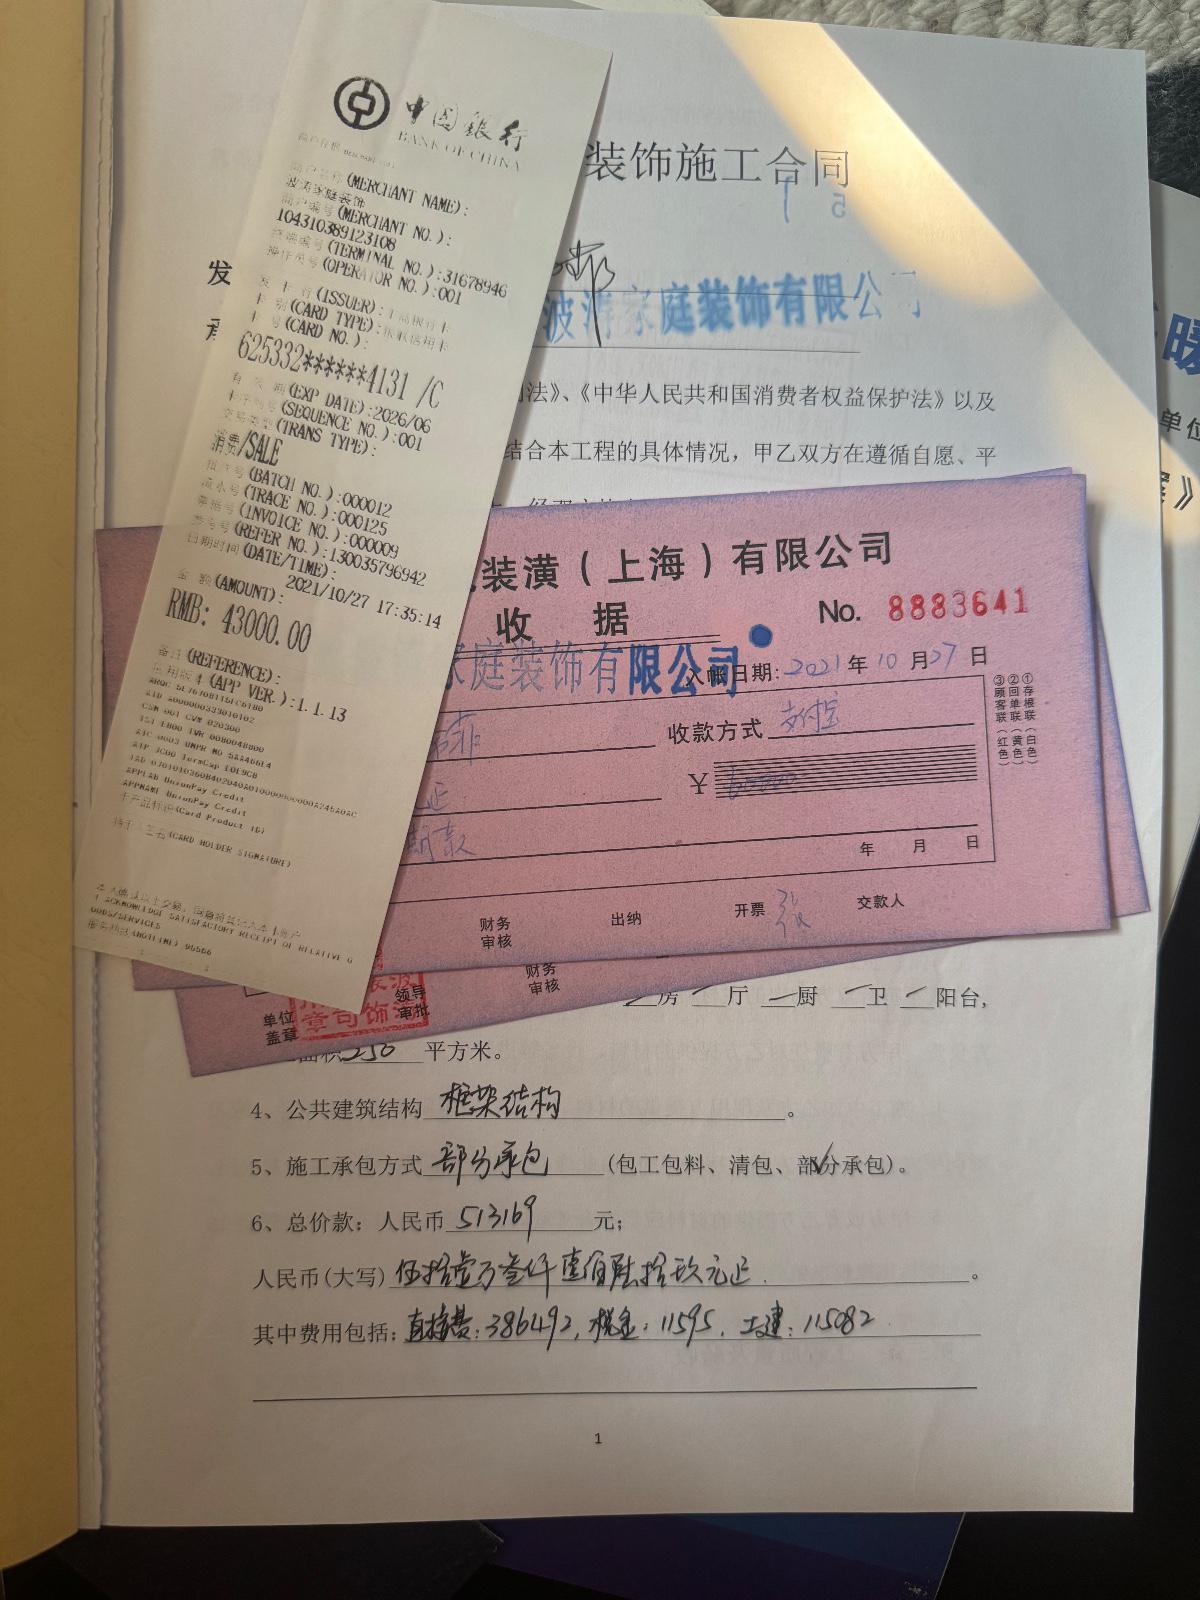 中国银行
BANK OF CHINA
商户名称(MERCHANT NAME):
波涛家庭装饰
商户编号(MERCHANT NO.):
104310389123108
终端编号(TERMINAL NO.):31678946
操作员号(OPERATOR NO.):001
发卡行(ISSUER):工商银行卡
卡别(CARD TYPE):银联信用卡
卡号(CARD NO.):
625332******4131 /C
有效期(EXP DATE):2026/06
卡序列号(SEQUENCE NO.):001
交易类型(TRANS TYPE):
消费/SALE
批次号(BATCH NO.):000012
流水号(TRACE NO.):000125
票据号(INVOICE NO.):000009
参考号(REFER NO.):130035796942
日期时间(DATE/TIME):
2021/10/27 17:35:14
金额(AMOUNT):
RMB: 43000.00
备注(REFERENCE):
应用版本(APP VER.):1.1.13
APPLAB UnionPay Credit
APPNAME UnionPay Credit
卡产品标识(Card Product ID)
持卡人签名(CARD HOLDER SIGNATURE)
I ACKNOWLEDGE SATISFACTORY RECEIPT OF RELATIVE G
OODS/SERVICES
服务热线(HOTLINE) 95566
装饰施工合同
发
波涛家庭装饰有限公司
法》、《中华人民共和国消费者权益保护法》以及
结合本工程的具体情况，甲乙双方在遵循自愿、平
装潢（上海）有限公司
收据
No. 8883641
家庭装饰有限公司
入帐日期: 2021 年 10 月 27 日
收款方式 支付宝
¥ 60000
正
期款
年 月 日
①存根联（白色）
②回单联（黄色）
③顾客联（红色）
财务审核
出纳
开票 张
交款人
财务审核
单位盖章
领导审批
房 厅 一厨 一卫 阳台,
面积 256 平方米。
4、公共建筑结构 框架结构 。
5、施工承包方式 部分承包 (包工包料、清包、部分承包)。
6、总价款：人民币 513169 元；
人民币(大写) 伍拾壹万叁仟壹佰陆拾玖元正 。
其中费用包括: 直接费：386492, 税金：11595, 土建：115082
1
暖
单位
》